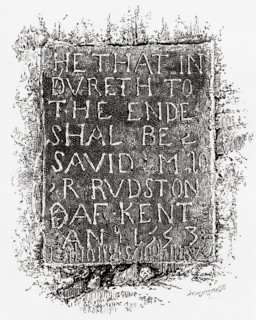 HE THAT IN
DVRETH TO
THE ENDE
SHAL BE
SAVID M 10
R RVDSTON
DAF KENT
AN 1553